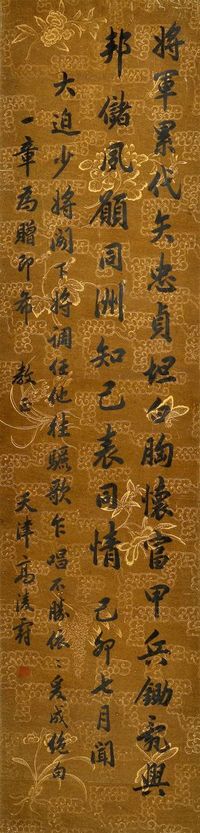 將軍累代矢忠貞坦白胸懷富甲兵鋤亂興
邦儲夙願同洲知己表同情 己卯七月聞
大迫少將閣下將調任他往驪歌乍唱不勝依〻爰成絶句
一章為贈即希 教正 天津高凌霨